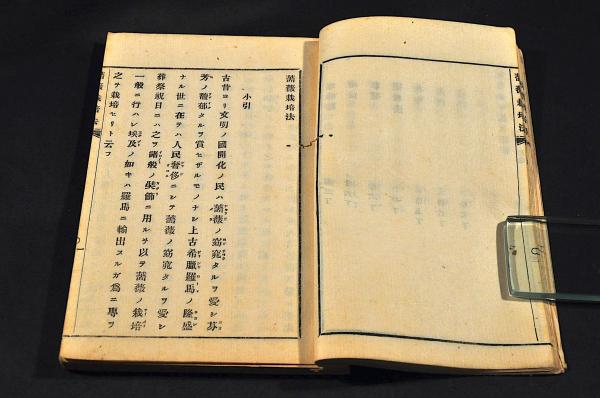 薔薇栽培法
薔薇栽培法
小引
古昔ヨリ文明ノ國開化ノ民ハ薔薇ノ窈窕タルヲ愛シ芬
芳ノ馥郁タルヲ賞セザルモノナシ上古希臘羅馬ノ隆盛
ナル世ニ在テハ人民奢侈ニシテ薔薇ノ窈窕タルヲ愛シ
葬祭祝日ニハ之ヲ諸般ノ裝飾ニ用ルヲ以テ薔薇ノ栽培
一般ニ行ハレ埃及ノ如キハ羅馬ニ輸出スルガ爲ニ專ラ
之ヲ栽培セリト云フ